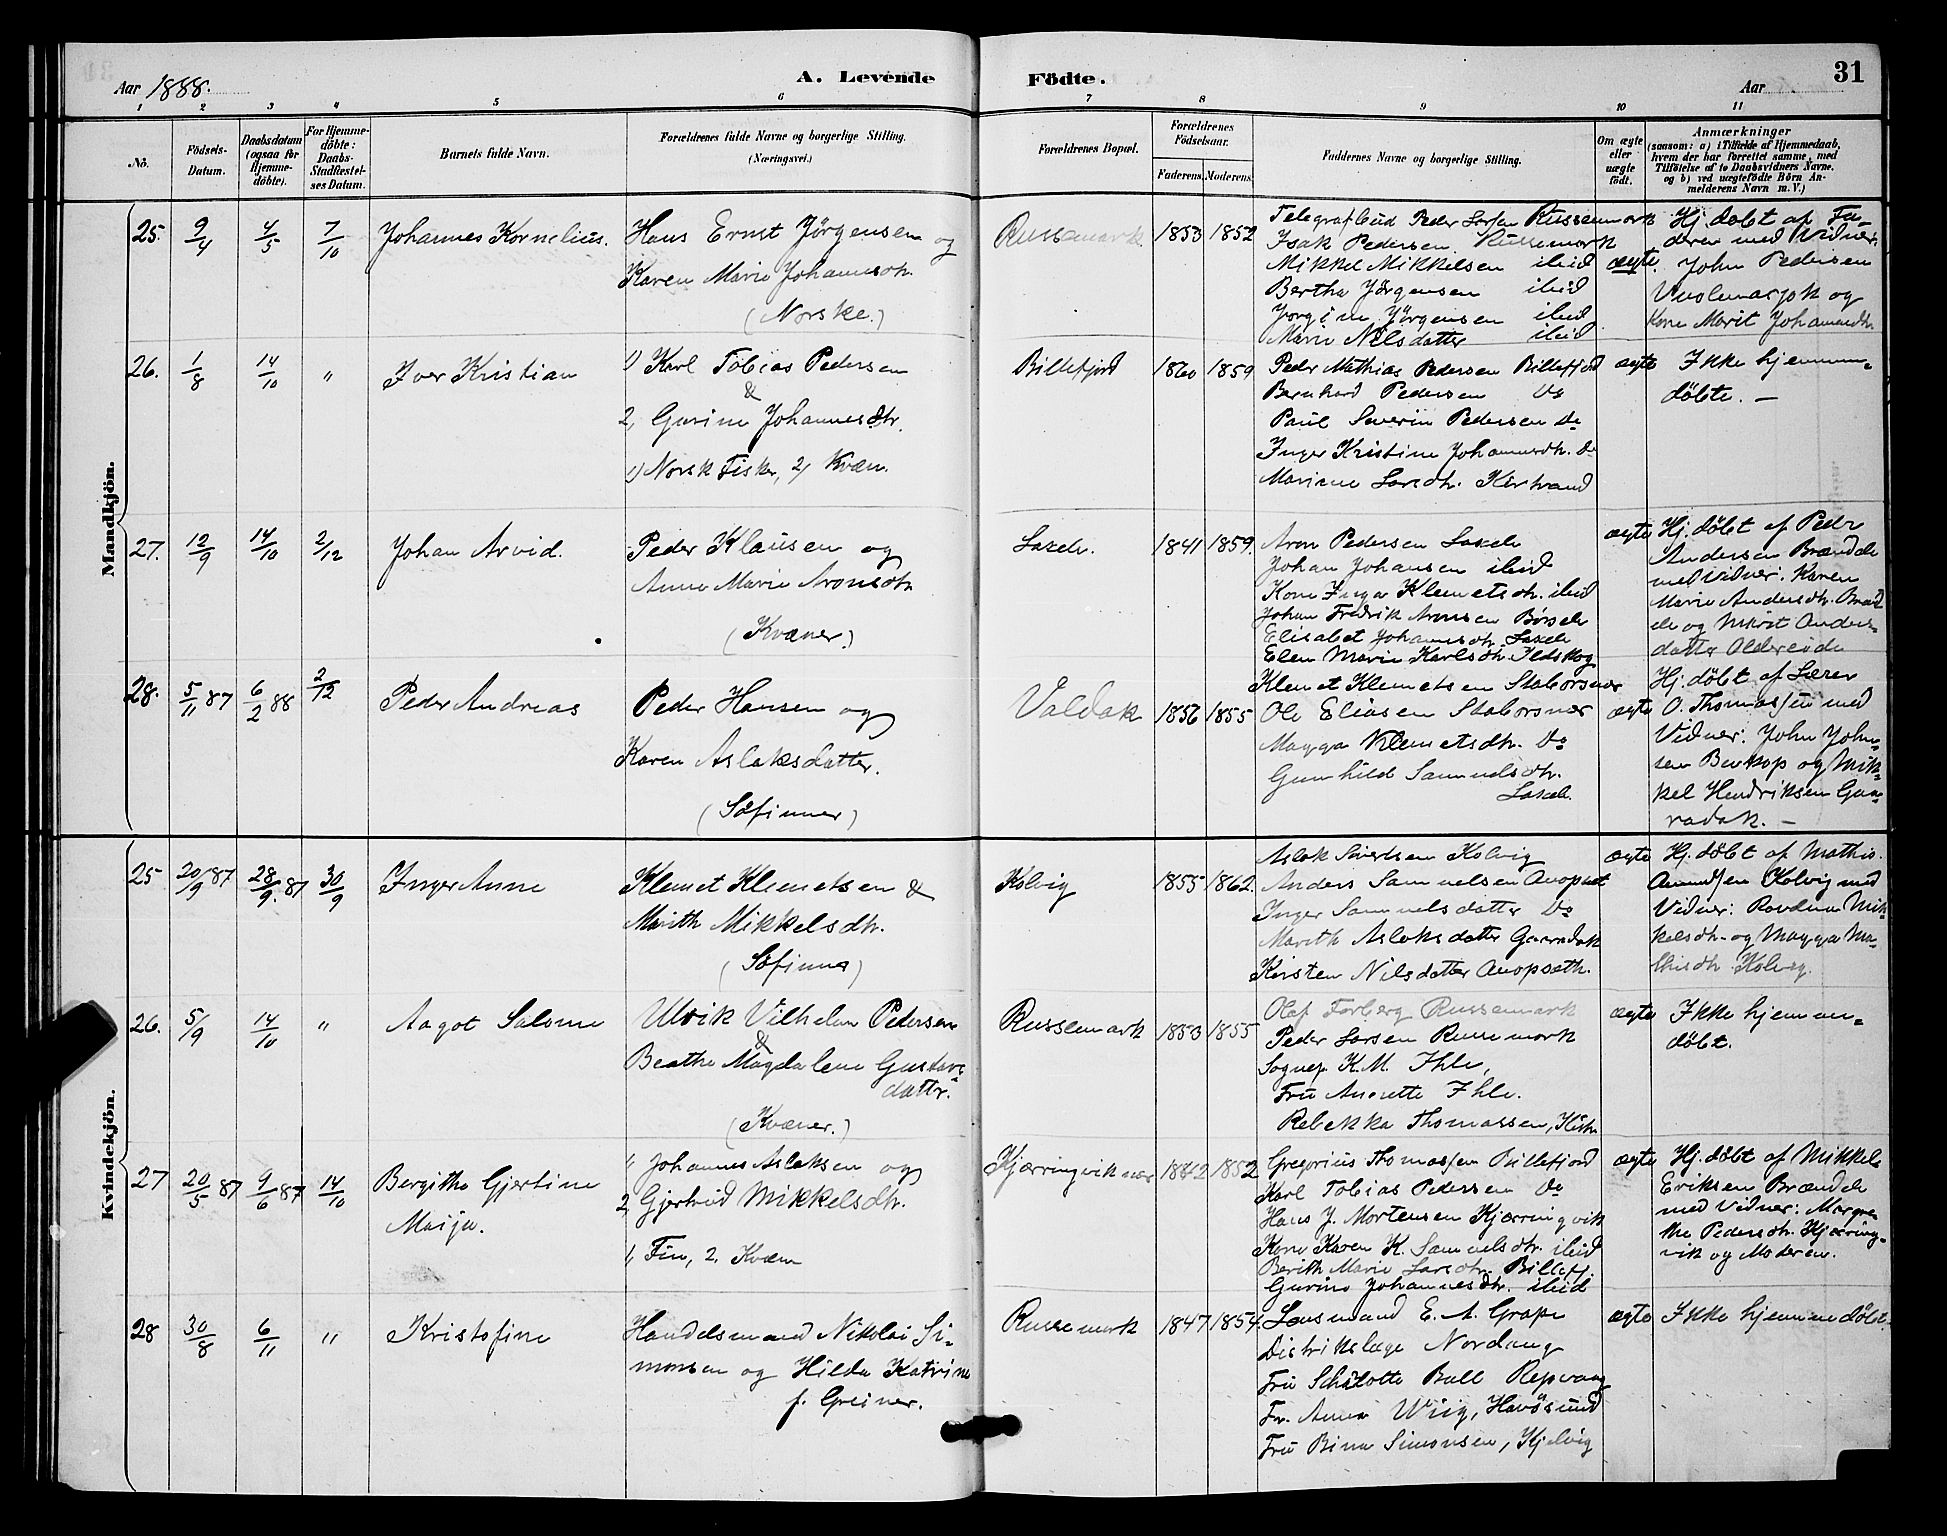 Aar 1888.
A. Levende Födte.
Aar
31
1 2 3 4 5 6 7 8 9 10 11
No.
Födsels-Datum.
Daabsdatum (ogsaa for Hjemme-döbte).
For Hjemme-döbte: Daabs-Stadfæstel-ses Datum.
Barnets fulde Navn.
Forældrenes fulde Navne og borgerlige Stilling. (Næringsvei.)
Forældrenes Bopæl.
Forældrenes Födselsaar.
Faderens. Moderens.
Faddernes Navne og borgerlige Stilling.
Om ægte eller uægte födt.
Anmærkninger
(saasom: a) i Tilfælde af Hjemmedaab, hvem der har forrettet samme, med Tilföielse af to Daabsvidners Navne. og b) ved uægtefödte Börn An-melderens Navn m. V.)
Mandkjön.
25. 9/4 4/5 7/10 Johannes Kornelius.
Hans Ernst Jørgensen og
Karen Marie Johannesdtr.
(Norske.)
Russemark 1853 1852
Telegrafbud Peder Larsen Russemark
Isak Pedersen Russemark
Mikkel Mikkelsen ibid
Bertha Jørgensen ibid
Jørgine Jørgensen ibid
Marie Nilsdatter ibid
ægte.
Hj. døbt af Fa-
deren med Vidner:
John Pedersen
Vuolemasjok og
Kone Marit Johannesdtr.
26. 1/8 14/10 " Iver Kristian
1) Karl Tobias Pedersen
&
2, Gurine Johannesdtr.
1) Norsk Fisker, 2) Kvæn.
Billefjord 1860 1859
Peder Mathias Pedersen Billefjord
Bernhard Pedersen Do
Paul Severin Pedersen Do
Inger Kristine Johannesdtr. Do
Mariane Larsdtr. Kistrand
ægte
Ikke hjemme-
døbte. —
27. 12/9 14/10 2/12 Johan Arvid.
Peder Klausen og
Anne Marie Aronsdtr
(Kvæner.)
Laxelv. 1841 1859.
Aron Pedersen Laxelv
Johan Johansen ibid
Kone Inga Klemetsdtr. ibid
Johan Fredrik Aronsen Børselv
Elisabet Johannesdtr. Laxelv
Elen Marie Karlsdtr. Ildskog
ægte
Hj. døbt af Peder
Andersen Brændelv
med Vidner: Karen
Marie Andersdtr. Brænd-
elv og Marit Anders-
datter Oldereide
28. 5/11 87 6/2 88 2/12 Peder Andreas
Peder Hansen og
Karen Aslaksdatter.
(Søfinner)
Valdak 1856 1855
Klemet Klemetsen Staborsnæs
Ole Eliasen Staborsnæs
Magga Klemetsdtr. Do
Gunhild Samuelsdtr.
Laxelv.
ægte
Hj. døbt af Lærer
O. Thomassen med
Vidner: John John-
sen Benkop og Mik-
kel Hendriksen Gaa-
radak. —
Kvindekjön.
25 20/9 87 28/9. 87 30/9 Inger Anne
Klemet Klemetsen &
Marith Mikkelsdtr.
(Søfinne)
Kolvig 1855 1862.
Aslak Sivertsen Kolvig
Anders Samuelsen Avopset
Inger Samuelsdatter Do
Marith Aslaksdatter Gaaradak
Kirsten Nilsdatter Avopseth.
ægte
Hj. døbt af Mathis.
Amundsen Kolvig med
Vidner: Ravdna Mik-
kelsdtr. og Magga Ma-
thisdtr Kolvig.
26. 5/9 14/10 " Aagot Salome
Ulrik Vilhelm Pedersen
&
Beathe Magdalene Gustavs-
dattr.
(Kvæner.)
Russemark 1853 1855
Olaf Forberg Russemark
Peder Larsen Russemark
Sognep. K. M. Ihle,
Fru Annette Ihle.
Rebekka Thomassen, Kistr.
ægte
Ikke hjemme-
døbt.
27 20/5 87 9/6 87 14/10 Bergitha Gjertine
Maija.
1, Johannes Aslaksen og
2, Gjertrud Mikkelsdtr.
1, Fin, 2. Kvæn
Kjærringviknæs 1842 1852
Gregorius Thomassen Billefjord
Karl Tobias Pedersen Do
Hans J. Mortensen Kjærringvik
Kone Karen K. Samuelsdtr. ibid
Berith Marie Larsdtr. Billefj.
Gurine Johannesdtr. ibid
ægte
Hj. døbt af Mikkel
Eriksen Brændelv
med Vidner: Margre-
the Pedersdtr. Kjærring-
vik og Moderen.
28 30/8 6/11 " Kristofine
Handelsmand Nikolai Si-
monsen og Hilda Katrine
f. Greiner.
Russemark 1847 1854.
Lensmand E. A. Grape
Distriktslæge Nordang
Fru Schalotte Ball Repvaag
Fr. Anna Wiig, Havøsund
Fru Bina Simonsen, Kjelvig
ægte
Ikke hjemmedøbt.